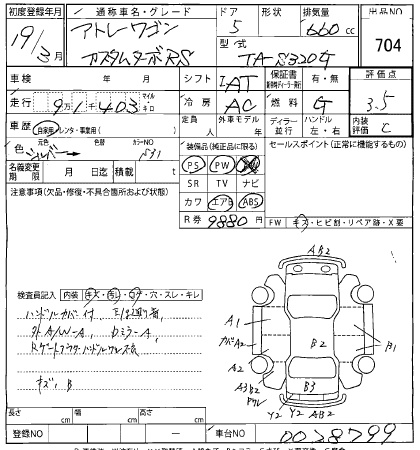 初度登録年月 通称車名・グレード ドア 形状 排気量 出品NO
19/3月 アトレーワゴン 5 660 cc 704
カスタムターボRS 型式 TA-S320G
車検 年 月 シフト IAT 保証書 有・無 評価点
走行 9万1千403 マイル キロ 冷房 AC 燃料 G 3.5
定員 人 外車モデル 年 ディーラー 並行 ハンドル 左・右 内装評価 C
車歴 自家用 レンタ・事業用( )
色 元色 シルバー 色替 カラーNO 装備品(純正品に限る) セールスポイント(正常に機能するもの)
名義変更期限 月 日迄 積載 t PS PW
注意事項(欠品・修復・不具合箇所および状態) SR TV ナビ
カワ エアB ABS
R券 9880円
FW キズ・ヒビ割・リペア跡・X要
検査員記入 内装 キズ・汚レ・コゲ・穴・スレ・キレ
ハンドルカバー付
外A/W-A Dミラー-A
キズ、B
AB2
A1
カバA2 B2 B1
A2
A3B2 B3 Y2
Y2 Y2 AB2
長さ cm 幅 cm 高さ cm
登録NO 車台NO 0028799